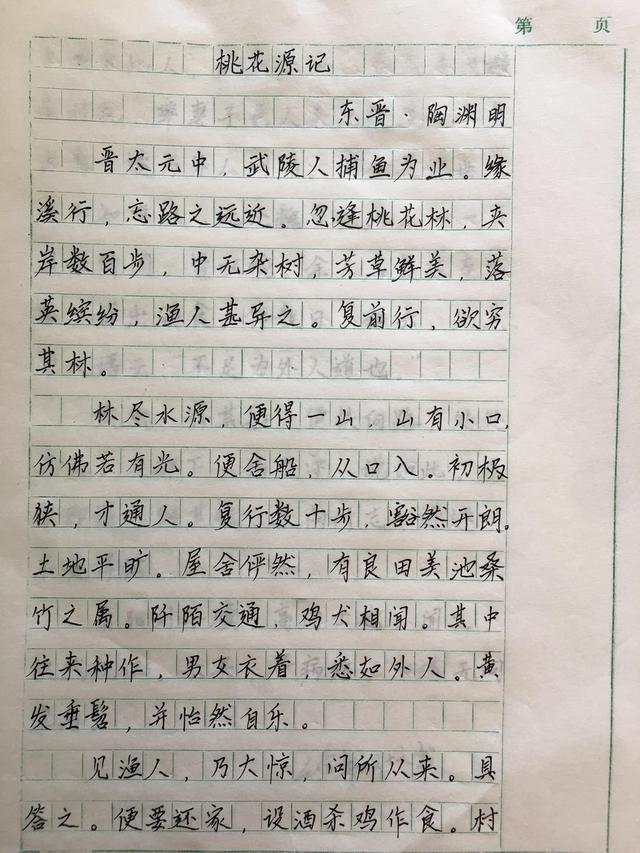 第 页
桃花源记
东晋·陶渊明
晋太元中，武陵人捕鱼为业。缘
溪行，忘路之远近。忽逢桃花林，夹
岸数百步，中无杂树，芳草鲜美，落
英缤纷，渔人甚异之。复前行，欲穷
其林。
林尽水源，便得一山，山有小口，
仿佛若有光。便舍船，从口入。初极
狭，才通人。复行数十步，豁然开朗。
土地平旷。屋舍俨然，有良田美池桑
竹之属。阡陌交通，鸡犬相闻。其中
往来种作，男女衣着，悉如外人。黄
发垂髫，并怡然自乐。
见渔人，乃大惊，问所从来。具
答之。便要还家，设酒杀鸡作食。村